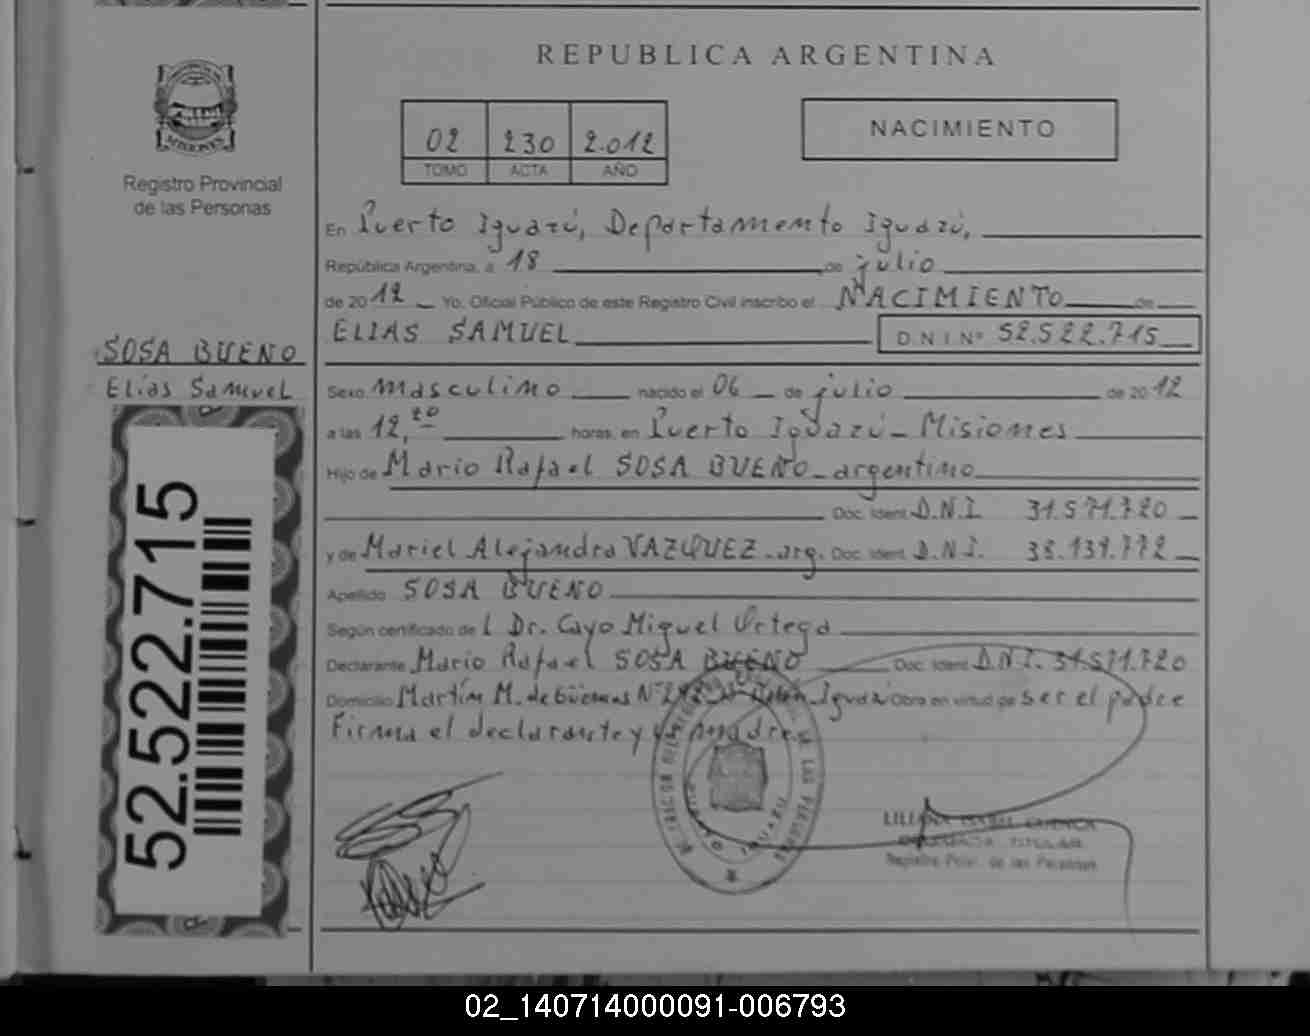 REPUBLICA ARGENTINA
MISIONES
Registro Provincial
de las Personas
02 230 2.012
TOMO ACTA AÑO
NACIMIENTO
En Puerto Iguazú, Departamento Iguazú,
República Argentina, a 18 de julio
de 2012 Yo, Oficial Público de este Registro Civil inscribo el NACIMIENTO de
ELIAS SAMUEL D.N.I Nº 52.522.715
SOSA BUENO
Elías Samuel
52.522.715
Sexo masculino nacido el 06 de julio de 2012
a las 12, horas, en Puerto Iguazú - Misiones
Hijo de Mario Rafael SOSA BUENO - argentino
Doc. Ident. D.N.I. 31.571.720
y de Mariel Alejandra VAZQUEZ - arg. Doc. Ident. D.N.I. 38.139.772
Apellido SOSA BUENO
Según certificado de l Dr. Cayo Miguel Ortega
Declarante Mario Rafael SOSA BUENO Doc. Ident. D.N.I. 31.571.720
Domicilio Martín M. de Güemes Nº Iguazú Obra en virtud de ser el padre
Firma el declarante y madre
LILIANA ISABEL CUENCA
DELEGADA TITULAR
Registro Pcial. de las Personas
02_140714000091-006793